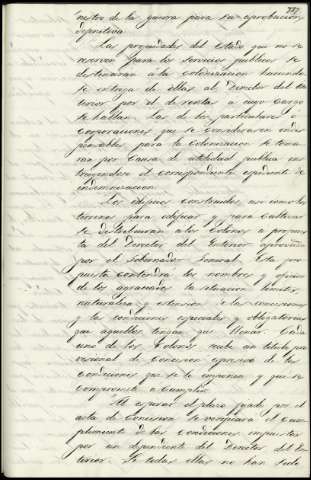 787
nistro de la guerra para su aprobacion
definitiva.
Las propiedades del Estado que no se
reserven para los servicios publicos se
destinaran a la colonizacion haciendo
se entrega de ellas al Director del Yn
terior por el de rentas a cuyo cargo
se hallan. Las de los particulares o
corporaciones que se consideraren indis
pensables para la colonizacion se toma
ran por causa de utilidad publica ins
truyendose el correspondiente espediente de
indemnizacion.
Los edificios construidos, asi como los
terrenos para edificar y para cultivar
se distribuiran a los colonos a propues
ta del Director del Ynterior aprovada
por el Gobernador General. Esta pro
puesta contendrá los nombres y oficios
de los agraciados la situacion, limites,
naturaleza y estension de las concesiones
y las condiciones especiales y obligatorias
que aquellos tengan que llenar. Cada
uno de los Colonos recibe un titulo pro
visional de concesion espresivo de las
condiciones que se le imponen y que se
compromete a cumplir.
Al espirar el plazo fijado por el
acta de concesion se verificará el cum
plimiento de las condiciones impuestas
por un dependiente del Director del Yn
terior. Si todas ellas no han sido